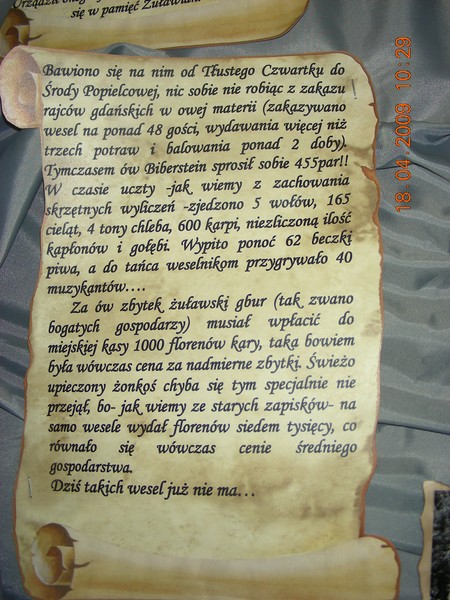 się w pamięć Żuławian
Bawiono się na nim od Tłustego Czwartku do
Środy Popielcowej, nic sobie nie robiąc z zakazu
rajców gdańskich w owej materii (zakazywano
wesel na ponad 48 gości, wydawania więcej niż
trzech potraw i balowania ponad 2 doby).
Tymczasem ów Biberstein sprosił sobie 455par!!
W czasie uczty -jak wiemy z zachowania
skrzętnych wyliczeń -zjedzono 5 wołów, 165
cieląt, 4 tony chleba, 600 karpi, niezliczoną ilość
kapłonów i gołębi. Wypito ponoć 62 beczki
piwa, a do tańca weselnikom przygrywało 40
muzykantów....
Za ów zbytek żuławski gbur (tak zwano
bogatych gospodarzy) musiał wpłacić do
miejskiej kasy 1000 florenów kary, taka bowiem
była wówczas cena za nadmierne zbytki. Świeżo
upieczony żonkoś chyba się tym specjalnie nie
przejął, bo- jak wiemy ze starych zapisków- na
samo wesele wydał florenów siedem tysięcy, co
równało się wówczas cenie średniego
gospodarstwa.
Dziś takich wesel już nie ma...
18.04.2009 10:29